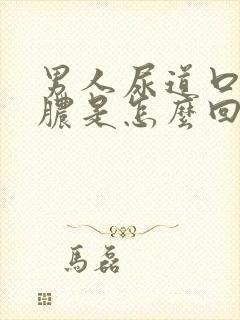 男人尿道口
膿是怎麼回
馬磊